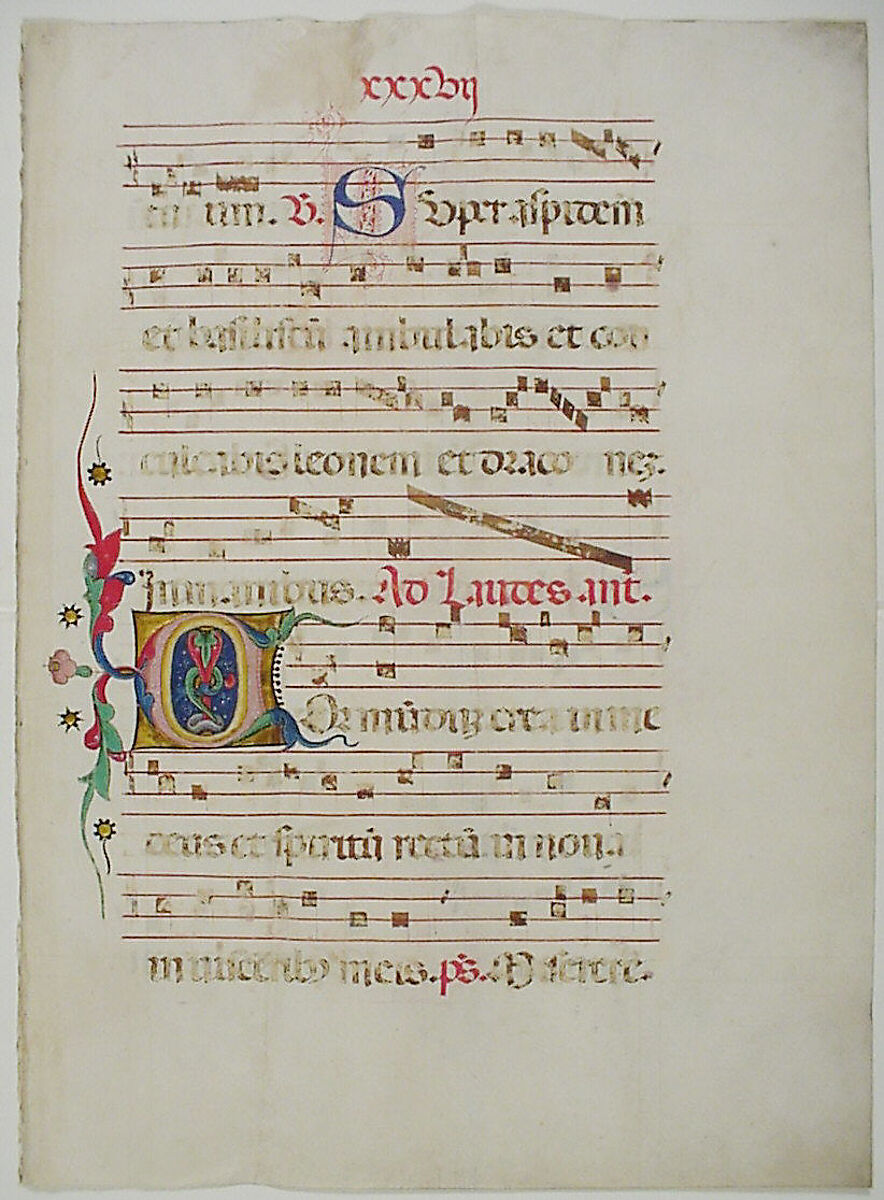 xxxvij
eum. ℣. Super aspidem
et basiliscū ambulabis et con
culcabis leonem et draco nez.
In manibus. Ad Laudes ant.
Cor mūdūz crea in me
deus et spiritū rectū in nova
in visceribꝯ meis. ps. Miserere.